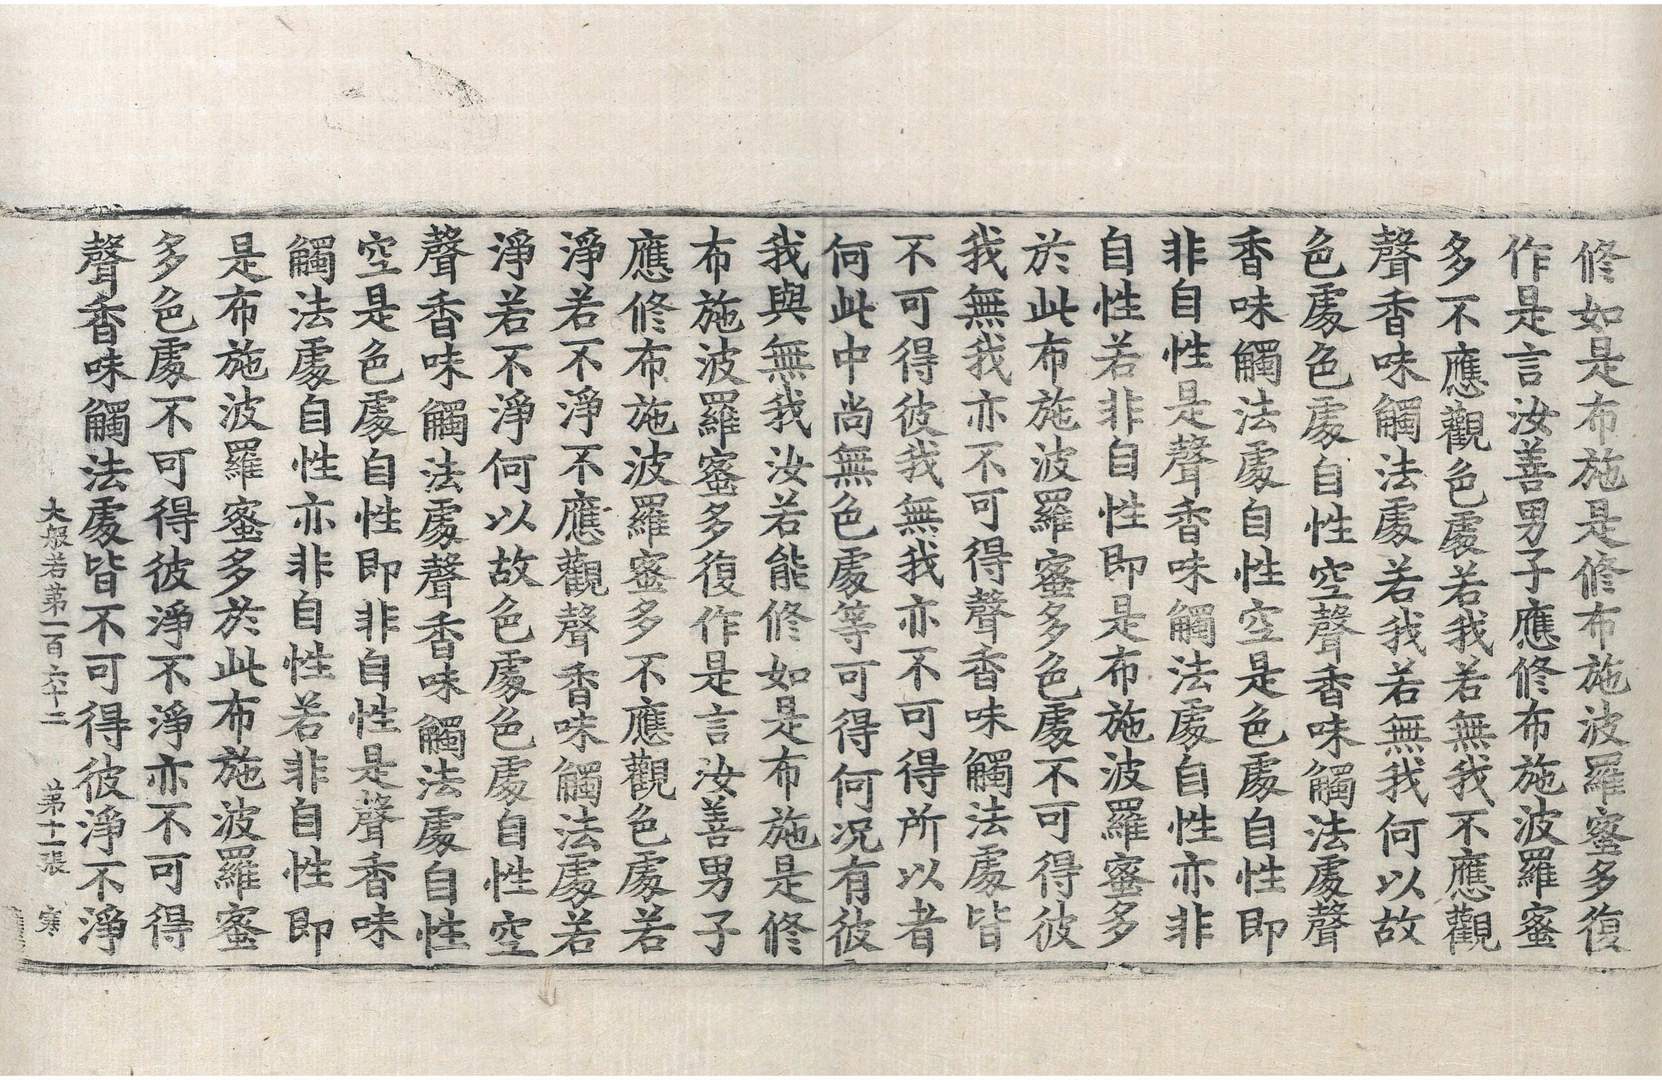 修如是布施是修布施波羅蜜多復
作是言汝善男子應修布施波羅蜜
多不應觀色處若我若無我不應觀
聲香味觸法處若我若無我何以故
色處色處自性空聲香味觸法處聲
香味觸法處自性空是色處自性即
非自性是聲香味觸法處自性亦非
自性若非自性即是布施波羅蜜多
於此布施波羅蜜多色處不可得彼
我無我亦不可得聲香味觸法處皆
不可得彼我無我亦不可得所以者
何此中尚無色處等可得何况有彼
我與無我汝若能修如是布施是修
布施波羅蜜多復作是言汝善男子
應修布施波羅蜜多不應觀色處若
淨若不淨不應觀聲香味觸法處若
淨若不淨何以故色處色處自性空
聲香味觸法處聲香味觸法處自性
空是色處自性即非自性是聲香味
觸法處自性亦非自性若非自性即
是布施波羅蜜多於此布施波羅蜜
多色處不可得彼淨不淨亦不可得
聲香味觸法處皆不可得彼淨不淨
大般若第一百六十二 第十一張 寒